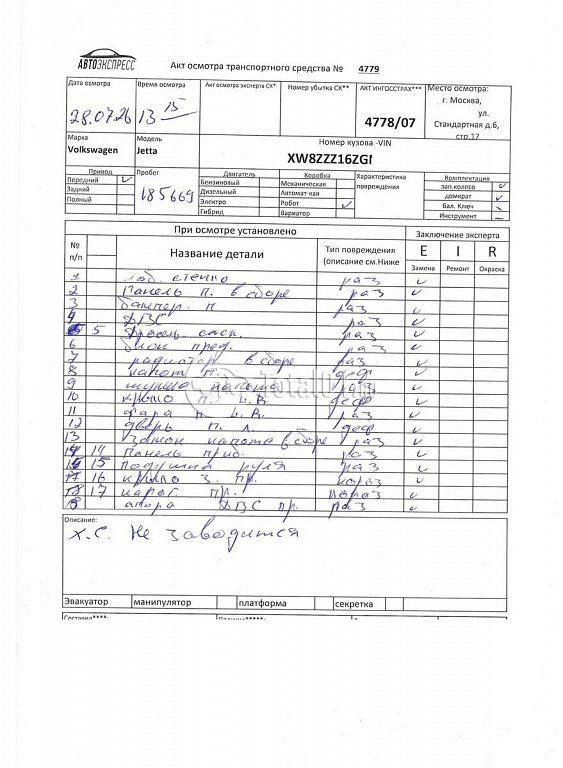 АВТОЭКСПРЕСС
Акт осмотра транспортного средства № 4779
Дата осмотра
Время осмотра
Акт осмотра эксперта СК*
Номер убытка СК**
АКТ ИНГОССТРАХ***
Место осмотра:
28.07.26
13 15
4778/07
г. Москва,
ул.
Стандартная д.6,
стр.17
Марка
Модель
Номер кузова -VIN
Volkswagen
Jetta
XW8ZZZ16ZGI
Привод
Пробег
Двигатель
Коробка
Характеристика повреждения
Комплектация
Передний ✓
185669
Бензиновый
Механическая
зап.колесо ✓
Задний
Дизельный
Автомат-кая
домкрат ✓
Полный
Электро
Робот ✓
бал. Ключ
Гибрид
Вариатор
Инструмент –
При осмотре установлено
Заключение эксперта
№ п/п
Название детали
Тип повреждения (описание см.Ниже
E I R
Замена Ремонт Окраска
1 лоб. стекло раз ✓
2 Панель п. в сборе раз ✓
3 бампер п раз ✓
4 ДВС раз ✓
5 раз ✓
6 блок пред. раз ✓
7 радиатор в сборе раз ✓
8 капот деф ✓
9 капота раз ✓
10 крыло п. L.R. деф ✓
11 фара п L.R. раз ✓
12 дверь п. л деф ✓
13 Замок капота в сборе раз ✓
14 14 Панель приб. раз ✓
15 подушка руля раз ✓
17 16 крыло з. пр. ✓
18 17 пр. ✓
опора ДВС пр. раз ✓
Описание:
Х.С. Не заводится
Эвакуатор манипулятор платформа секретка
Составил****: